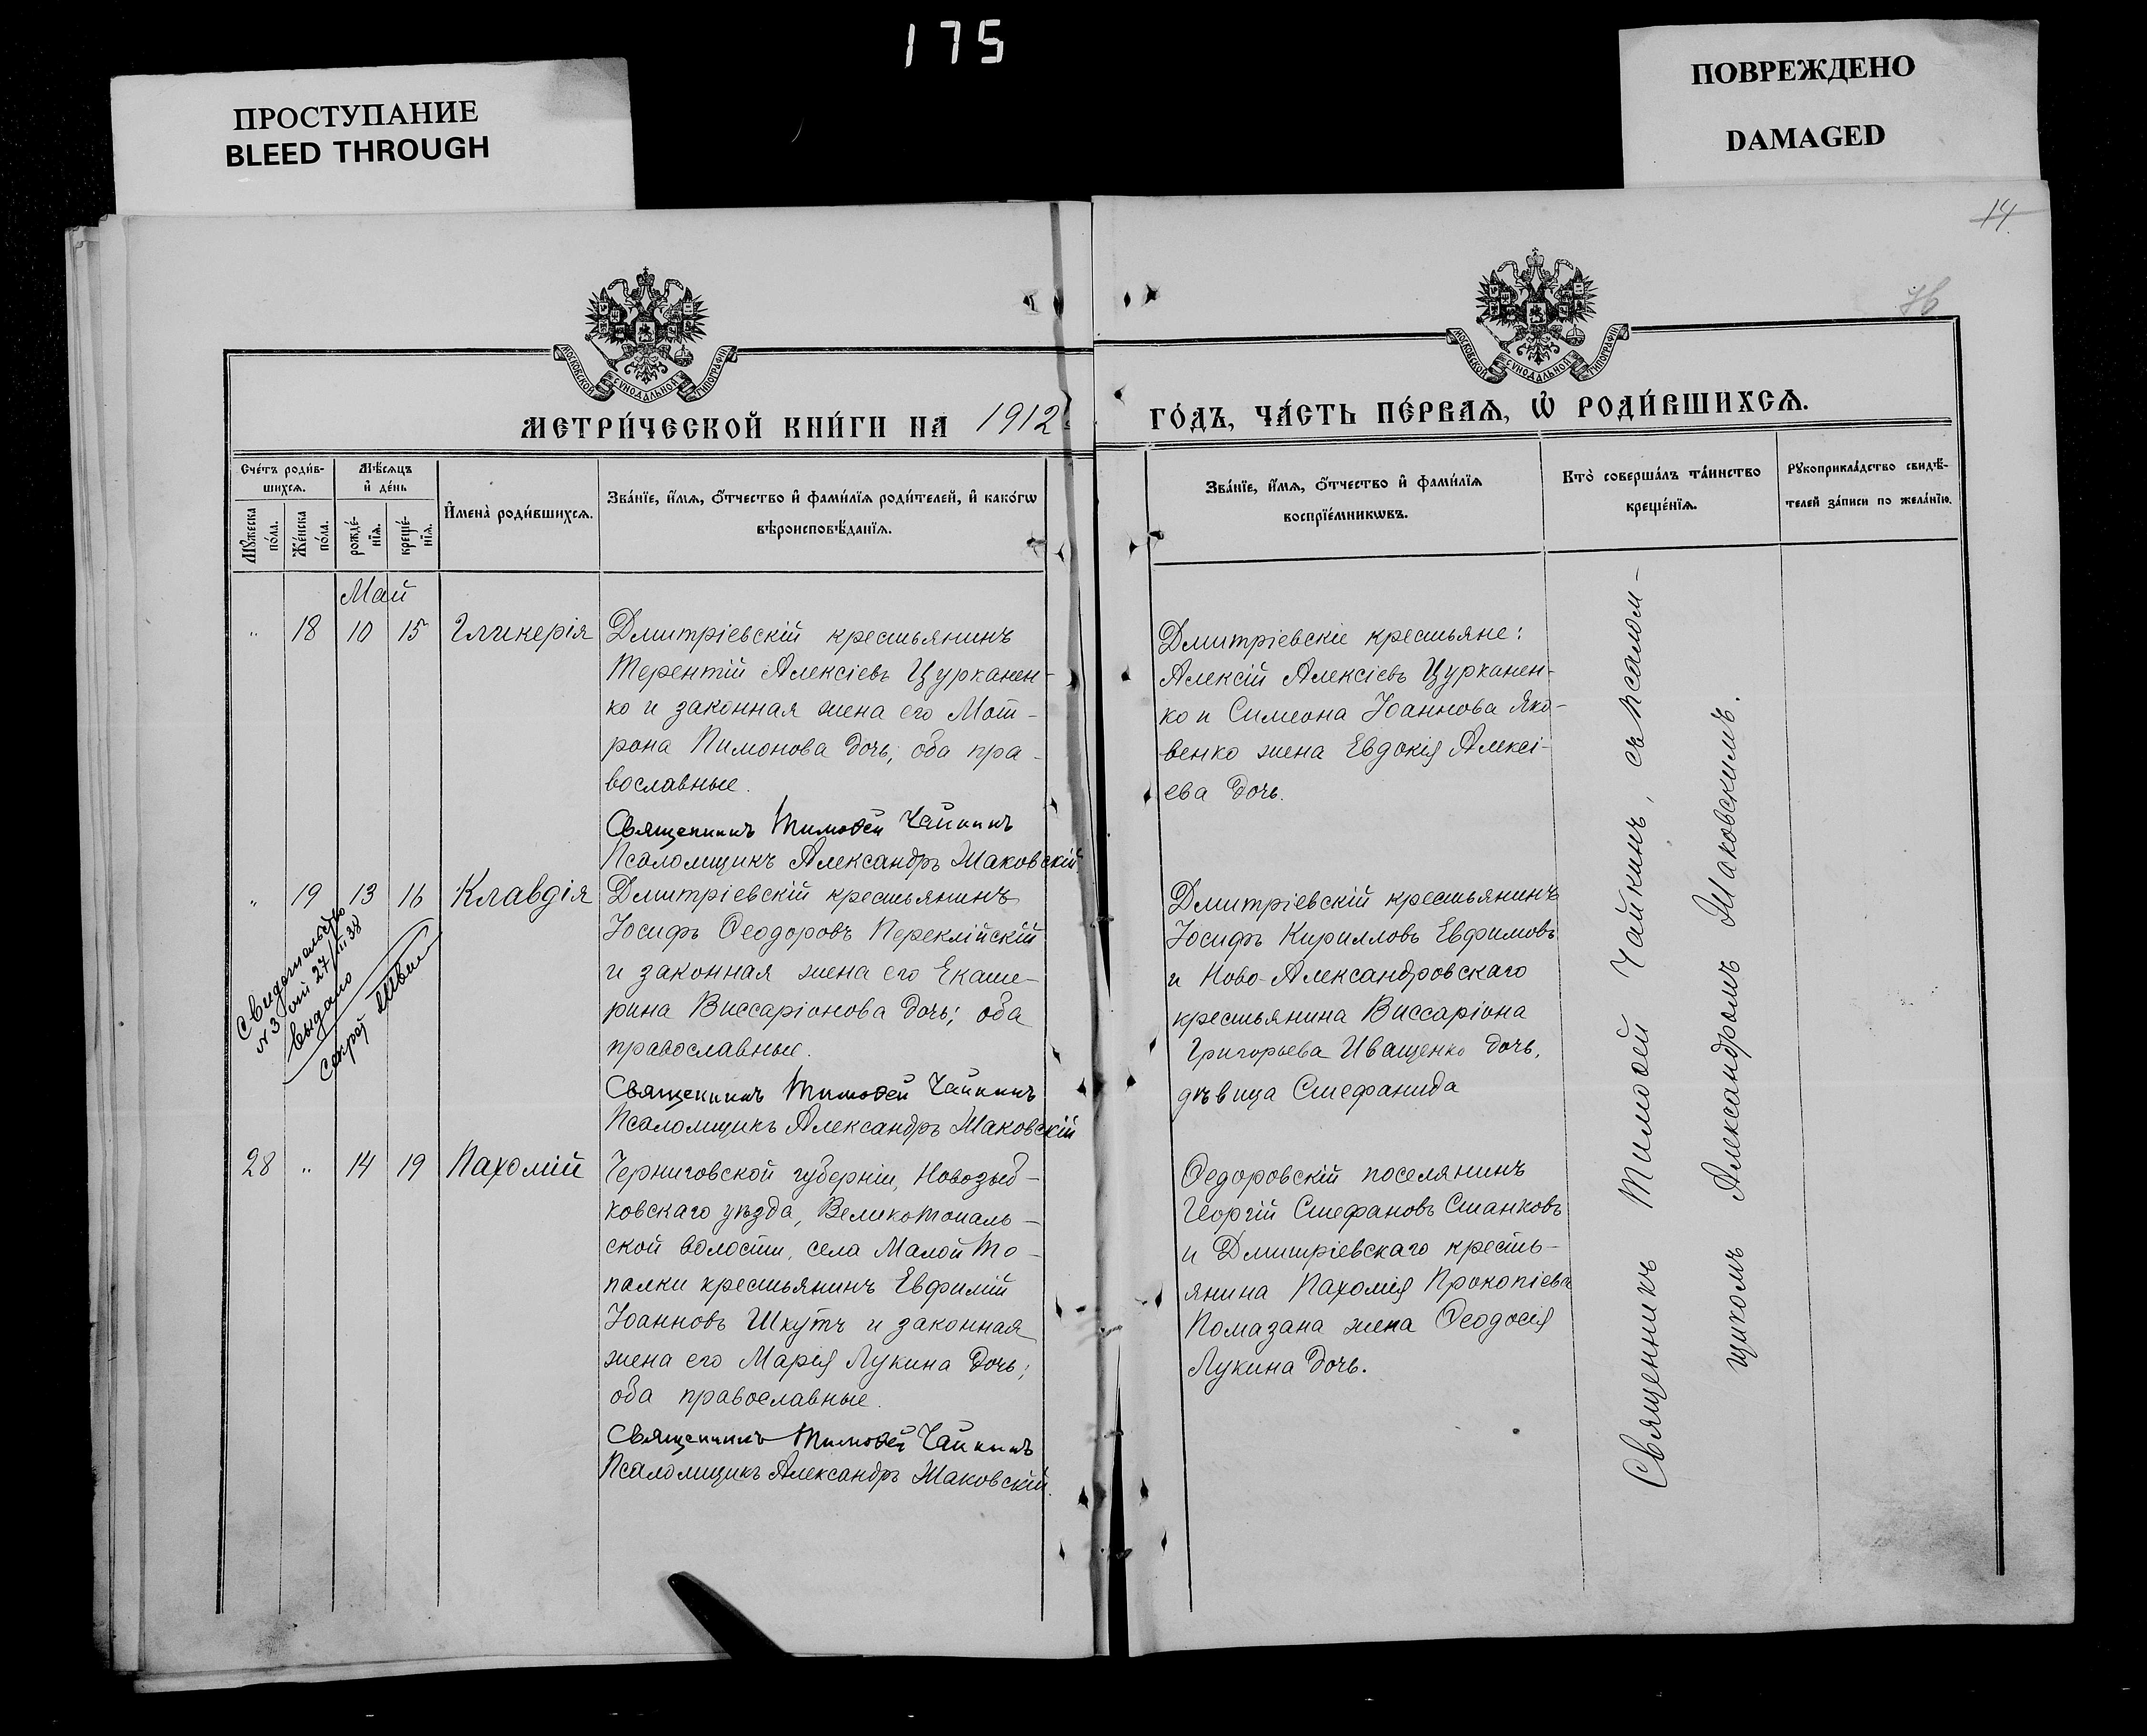 175
ПРОСТУПАНИЕ
BLEED THROUGH
ПОВРЕЖДЕНО
DAMAGED
14
76
МОСКОВСКОЙ СѴНОДАЛЬНОЙ ТИПОГРАФІИ
МОСКОВСКОЙ СѴНОДАЛЬНОЙ ТИПОГРАФІИ
МЕТРИ́ЧЕСКОЙ КНИ́ГИ НА 1912
ГО́ДЪ, ЧА́СТЬ ПЕ́РВАѦ, Ѡ҆ РОДИ́ВШИХСѦ.
Сче́тъ роди́в-
шихсѧ.
Мѣ́сѧцъ
и҆ де́нь
Мꙋ́жеска
по́ла.
Же́нска
по́ла.
рожде́-
нїѧ.
креще́-
нїѧ.
И҆мена̀ роди́вшихсѧ.
Зва́нїе, и҆́мѧ, ѻ҆́тчество и҆ фами́лїѧ роди́телей, и҆ како́гѡ
вѣроисповѣ́данїѧ.
Зва́нїе, и҆́мѧ, ѻ҆́тчество и҆ фами́лїѧ
воспрїе́мникѡвъ.
Кто̀ соверша́лъ та́инство
креще́нїѧ.
Рꙋкоприкла́дство свидѣ́-
телей за́писи по жела́нїю.
Май
" 18 10 15 Гликерія
Дмитріевскій крестьянинъ
Терентій Алексіевъ Цурканен-
ко и законная жена его Мот-
рона Пимонова дочь; оба пра-
вославные.
Священникъ Тимоѳей Чайкинъ
Псаломщикъ Александръ Маковскій
Дмитріевскіе крестьяне:
Алексій Алексіевъ Цурканен-
ко и Симеона Іоаннова Яко-
венко жена Евдокія Алексі-
ева дочь.
" 19 13 16 Клавдія
Дмитріевскій крестьянинъ
Іосифъ Ѳеодоровъ Переклійскій
и законная жена его Екате-
рина Виссаріонова дочь; оба
православные.
Священникъ Тимоѳей Чайкинъ
Псаломщикъ Александръ Маковскій
Дмитріевскій крестьянинъ
Іосифъ Кирилловъ Евфимовъ
и Ново-Александровскаго
крестьянина Виссаріона
Григорьева Иващенко дочь,
дѣвица Стефанида
N3 от 27/III 38
выдано
секрет
28 " 14 19 Пахомій
Черниговской губерніи, Новозыб-
ковскаго уѣзда, Великотопаль-
ской волости, села Малой То-
палки крестьянинъ Евфимій
Іоанновъ Шкутъ и законная
жена его Марія Лукина дочь;
оба православные.
Священникъ Тимоѳей Чайкинъ
Псаломщикъ Александръ Маковскій.
Ѳедоровскій поселянинъ
Георгій Стефановъ Станковъ
и Дмитріевскаго кресть-
янина Пахомія Прокопіева
Помазана жена Ѳеодосія
Лукина дочь.
Священникъ Тимоѳей Чайкинъ, съ псалом-
щикомъ Александромъ Маковскимъ.